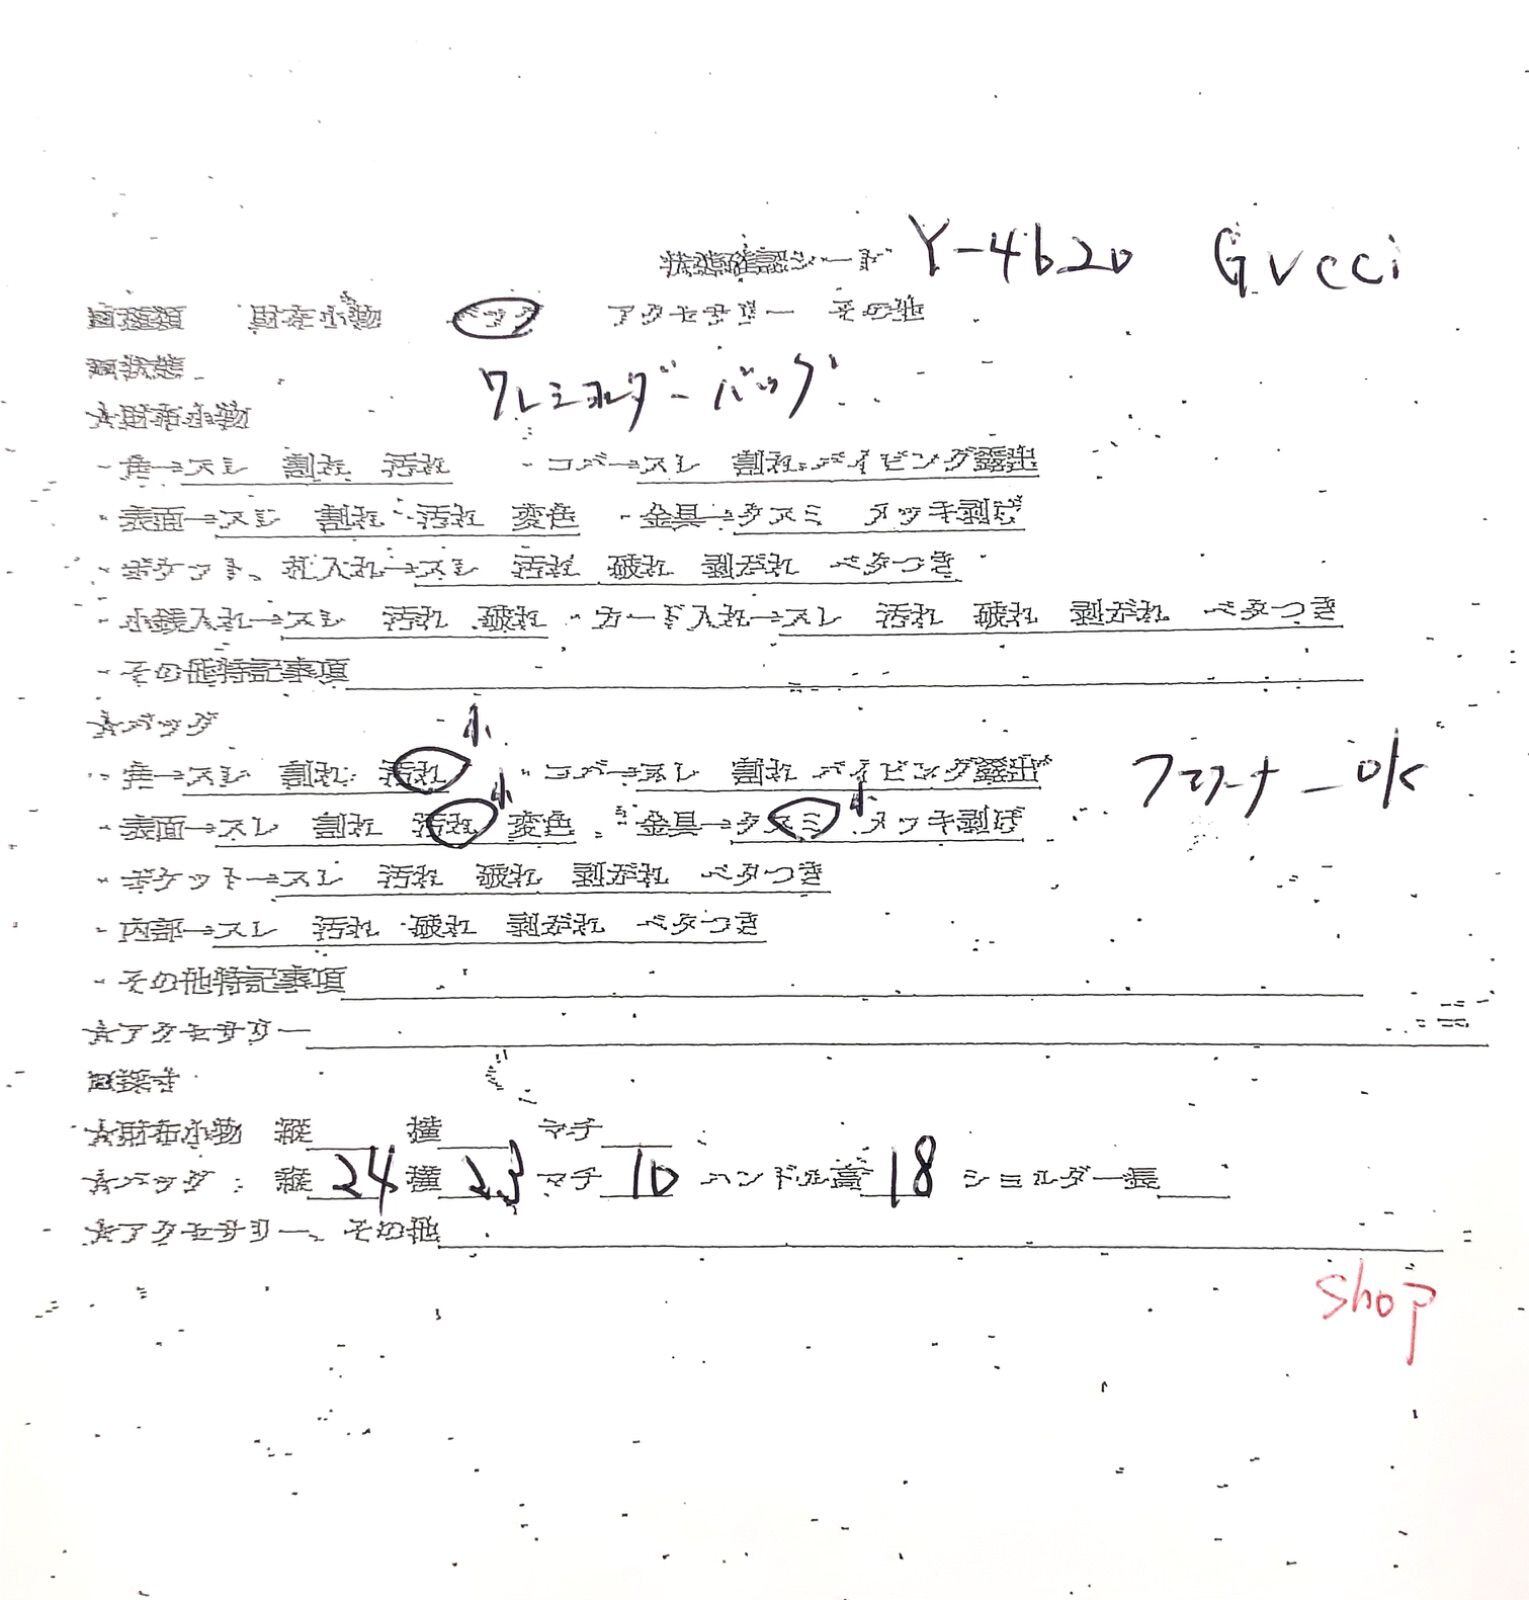 状態確認シート Y-4620 Gucci
■種類 財布小物 バッグ アクセサリー その他
■状態
ワレミヨルダーバッグ
☆財布小物
・角→スレ 割れ 汚れ ・コバ→スレ 割れ パイピング露出
・表面→スレ 割れ 汚れ 変色 ・金具→クスミ メッキ剥げ
・ポケット、札入れ→スレ 汚れ 破れ 剥がれ ベタつき
・小銭入れ→スレ 汚れ 破れ ・カード入れ→スレ 汚れ 破れ 剥がれ ベタつき
・その他特記事項
☆バッグ
小
・角→スレ 割れ 汚れ ・コバ→スレ 割れ パイピング露出 ファスナーOK
小 小
・表面→スレ 割れ 汚れ 変色 ・金具→クスミ メッキ剥げ
・ポケット→スレ 汚れ 破れ 剥がれ ベタつき
・内部→スレ 汚れ 破れ 剥がれ ベタつき
・その他特記事項
☆アクセサリー
■採寸
☆財布小物 縦 横 マチ
☆バッグ 縦 24 横 23 マチ 10 ハンドル高 18 ショルダー長
☆アクセサリー、その他
shop